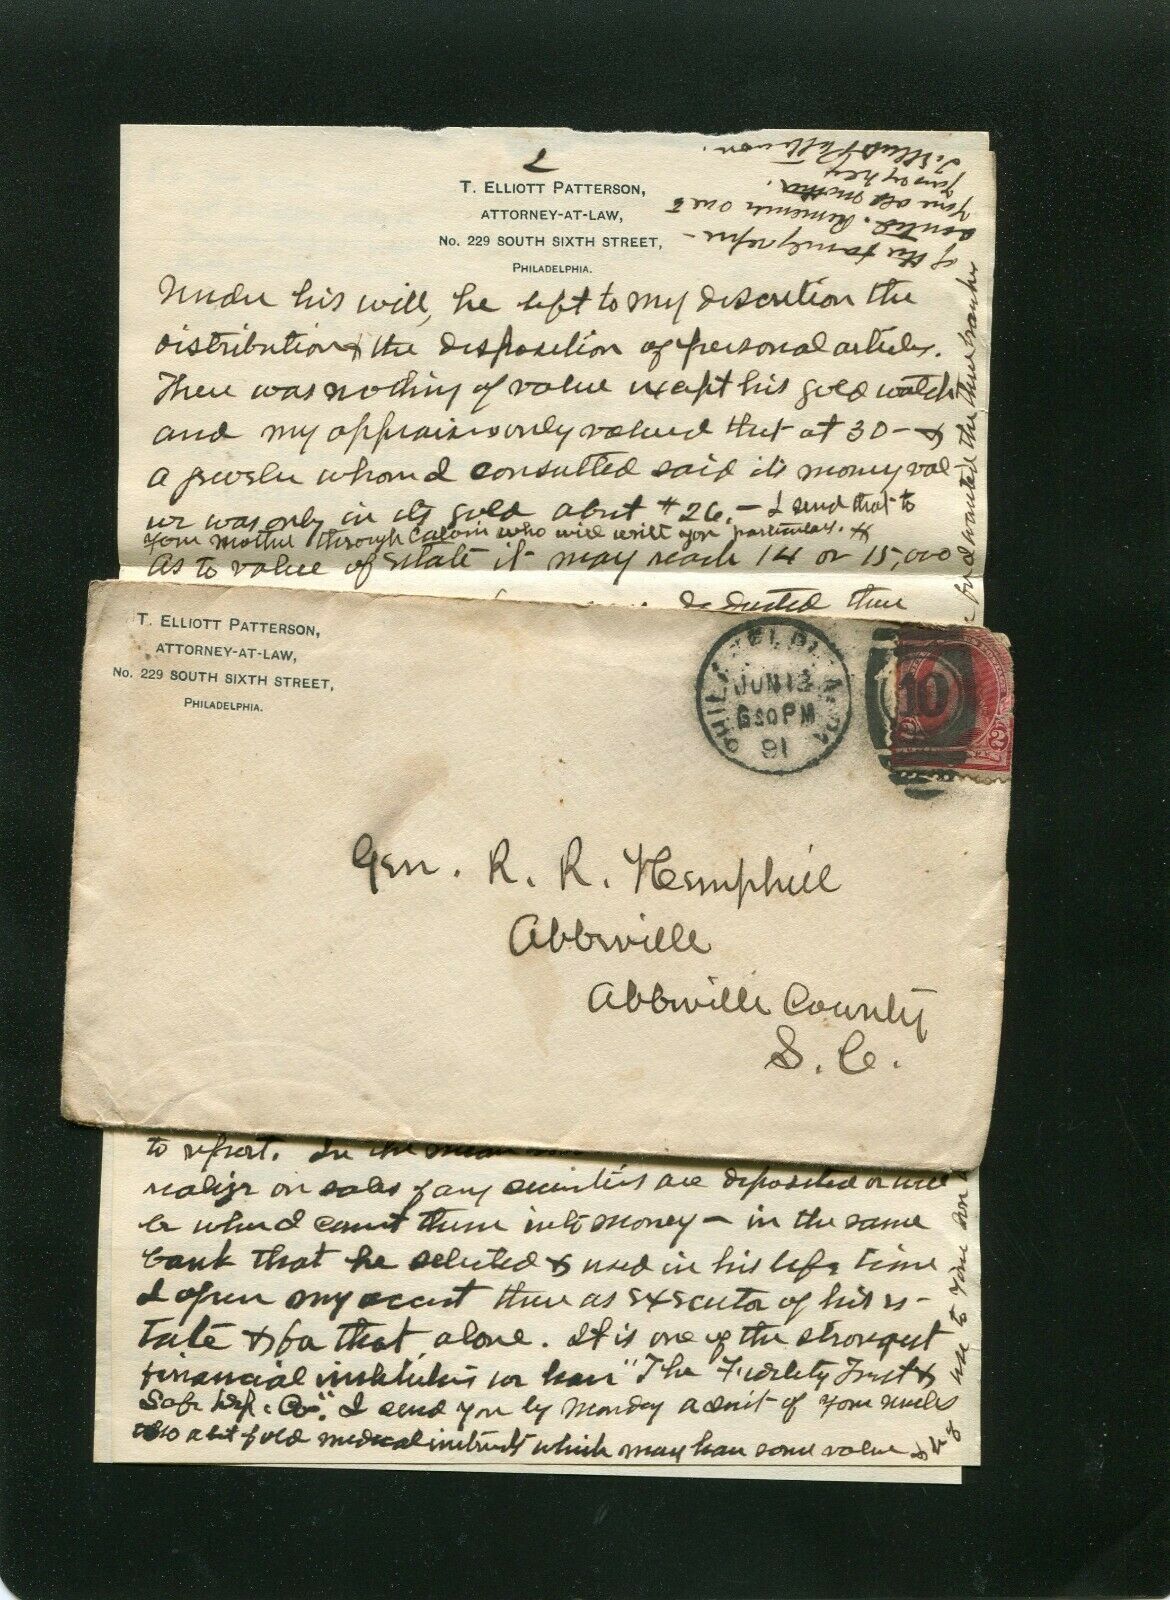 2
T. ELLIOTT PATTERSON,
ATTORNEY-AT-LAW,
No. 229 SOUTH SIXTH STREET,
PHILADELPHIA.
Under his will, he left to my discretion the
distribution & the disposition of personal articles.
There was nothing of value except his gold watch
and my appraisers only valued that at 30 – &
a jeweler whom I consulted said its money val-
ue was only in its gold about $26. – I send that to
your mother through Calvin who will write you particulars. &
As to value of Estate it may reach 14 or 15,000
deducted there
T. ELLIOTT PATTERSON,
ATTORNEY-AT-LAW,
No. 229 SOUTH SIXTH STREET,
PHILADELPHIA.
PHILADELPHIA, PA.
JUN 13
630PM
91
10
2
Gen. R. R. Hemphill
Abbeville
Abbeville County
S. C.
to report. In the mean
realize on sales of any securities are deposited or will
be when I convert them into money – in the same
bank that he selected & used in his life time
I open my accont there as Executor of his es-
tate & for that alone. It is one of the strongest
financial institutions we have "The Fidelity Trust &
Safe Dep. Co." I send you by Monday a suit of your uncles
also a lot of old medical instruments which may have some value &
use to your son
wanted them
of the family repre-
sented. Remember me to
your old mother.
T. Elliott Patterson.